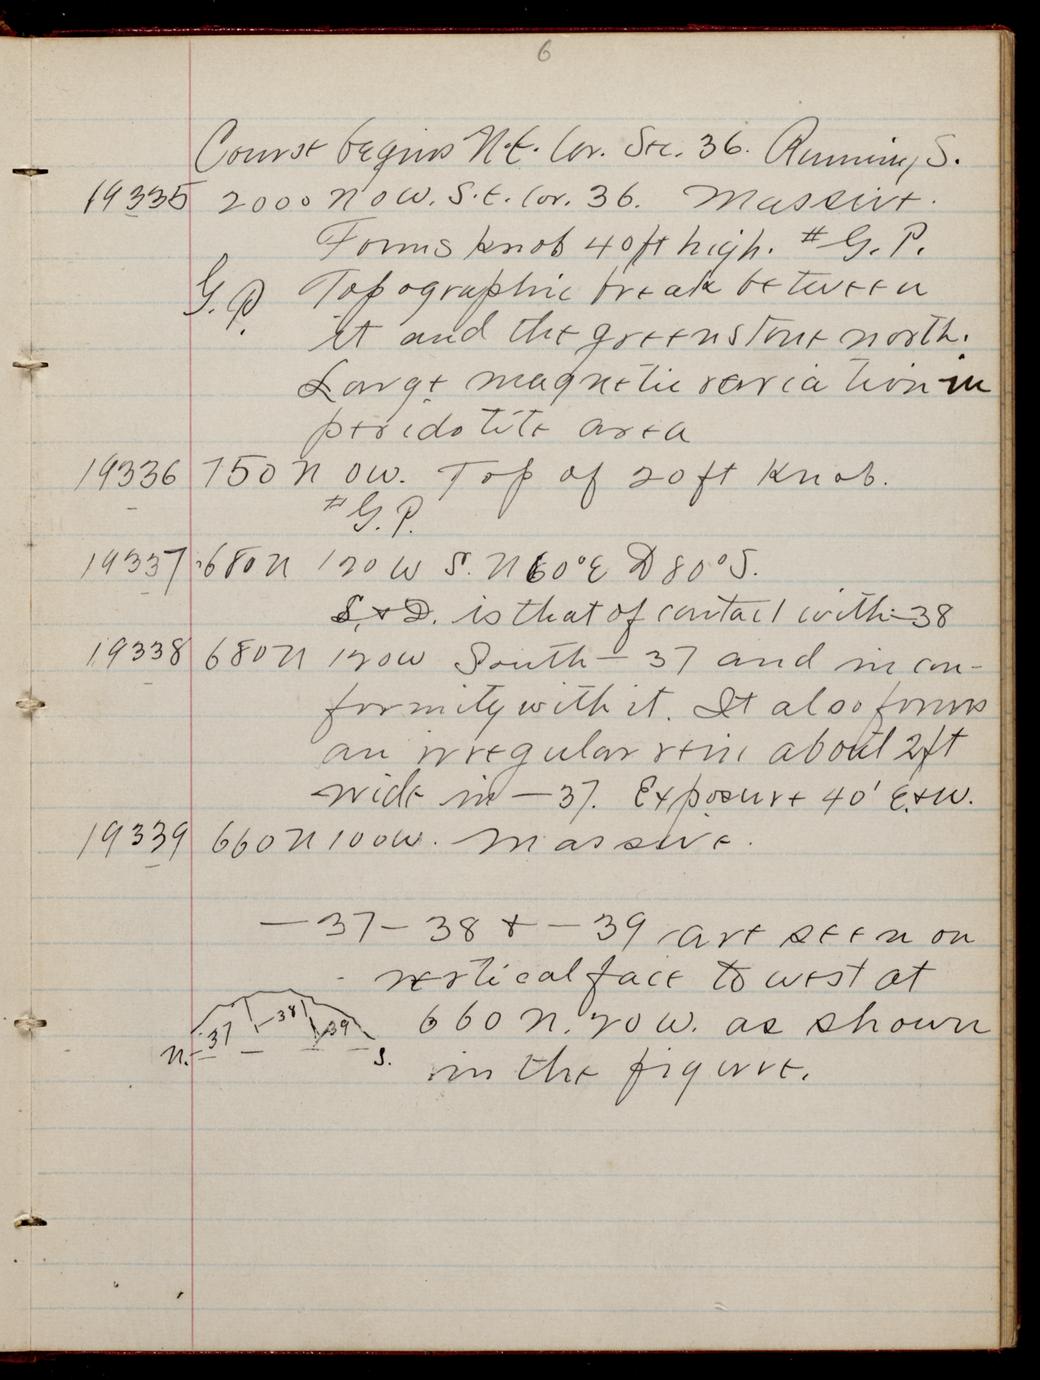 6
Course begins N.E. Cor. Sec. 36. Running S.
19335 2000 N 0 W. S.E. Cor. 36. Massive.
Forms knob 40 ft high. # G. P.
G. P. Topographic break between
it and the greenstone north.
Large magnetic variation in
peridotite area
19336 750 N 0 W. Top of 20 ft Knob.
# G. P.
19337 680 N 120 W S. N 60° E D 80° S.
S. & D. is that of contact with -38
19338 680 N 120 W South - 37 and in con-
formity with it. It also forms
an irregular vein about 2 ft
wide in - 37. Exposure 40' E. & W.
19339 660 N 100 W. Massive.
- 37 - 38 & - 39 are seen on
vertical face to west at
660 N. 70 W. as shown
in the figure.
37 - 38 39
N. S.